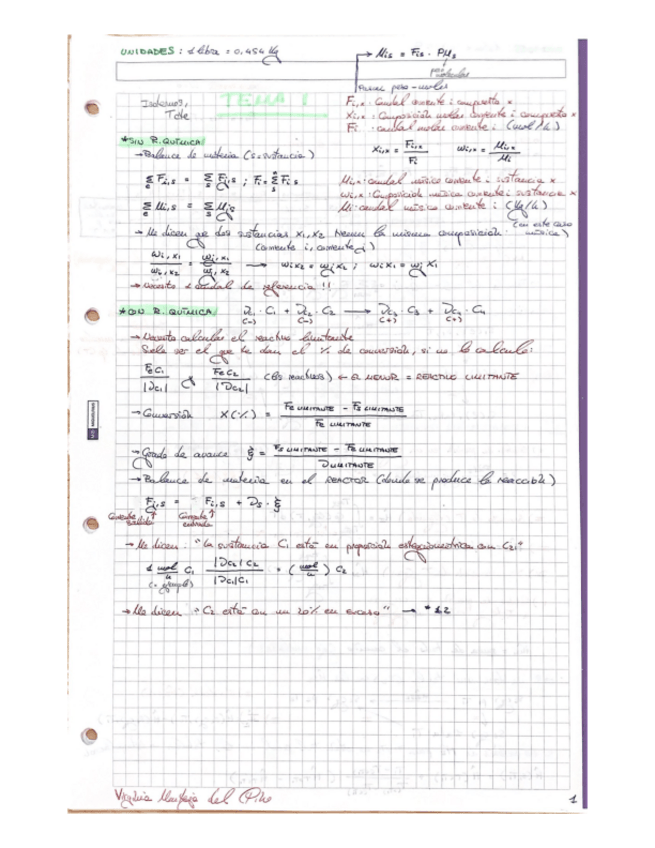 UNIDADES : 1 libra = 0,454 Kg
Mis = Fis · PMs
peso molecular
TEMA 1
Fi,x : Caudal corriente i compuesto x
Xi,x : Composición molar corriente i compuesto x
Fi : caudal molar corriente i (mol/h)
*SIN R. QUÍMICA
→ Balance de materia (s=sustancia)
Xi,x = Fi,x / Fi    wi,x = Mi,x / Mi
Σe Fi,s = Σs Fj,s ; Fi = Σs Fi,s
Mi,x : caudal másico corriente i sustancia x
wi,x : Composición másica corriente i sustancia x
Σe Mi,s = Σs Mj,s
Mi : caudal másico corriente i (Kg/h)
→ Me dicen que dos sustancias X1, X2 tienen la misma composición: (en este caso másica)
(corriente i, corriente j)
wi,x1 / wi,x2 = wj,x1 / wj,x2
→ Necesito 1 caudal de referencia !!
*CON R. QUÍMICA
ν1 · C1 + ν2 · C2 → ν3 · C3 + ν4 · C4
(-) (-) (+) (+)
→ Necesito calcular el reactivo limitante
Suele ser el que te dan el % de conversión, si no lo calculo:
FeC1 / |νC1|    FeC2 / |νC2|    (los reactivos) ← EL MENOR = REACTIVO LIMITANTE
→ Conversión X(%) = (Fe LIMITANTE - Fs LIMITANTE) / Fe LIMITANTE
→ Grado de avance ξ = (Fs LIMITANTE - Fe LIMITANTE) / ν LIMITANTE
→ Balance de materia en el REACTOR (donde se produce la reacción)
Fj,s = Fi,s + νs · ξ
Corriente salida    Corriente entrada
→ Me dicen : "La sustancia C1 está en proporción estequiométrica con C2:"
1 mol/h C1 · |νC2| C2 / |νC1| C1 = (mol/h) C2
(= ejemplo)
→ Me dicen : "C2 está en un 20% en exceso" → *1,2
del Pino
1